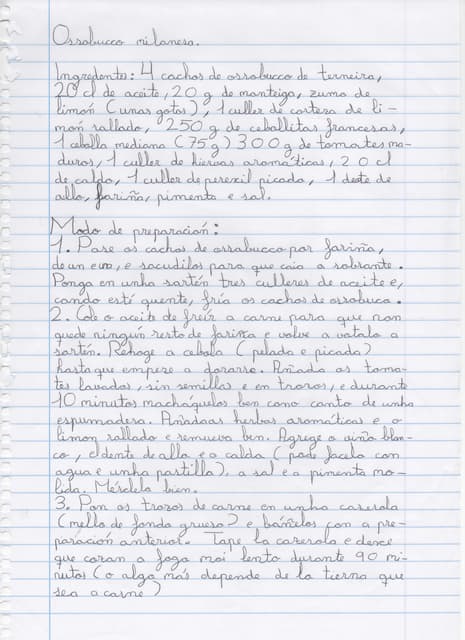 Ossobucco milanesa.
Ingredentes: 4 cachos de ossobucco de terneira,
20 cl de aceite, 20 g de manteiga, zumo de
limón (unas gotas), 1 culler de corteza de li-
món rallado, 250 g de ceballitas francesas,
1 cebolla mediana (75 g) 300 g de tomates ma-
duros, 1 culler de hierbas aromáticas, 20 cl
de caldo, 1 culler de perexil picado, 1 dente de
allo, fariña, pimenta e sal.
Modo de preparación:
1. Pase os cachos de ossobucco por fariña,
de un en un, e sacudilos para que caia a sobrante.
Ponga en unha sartén tres culleres de aceite e,
cando esté quente, fría os cachos de ossobuco.
2. Cole o aceite de freír a carne para que non
quede ningún resto de fariña e volve a votalo a
sartén. Rehoge a cebola (pelada e picada)
hasta que empeze a dorarse. Añada os toma-
tes lavados, sin semillas e en trozos, e durante
10 minutos macháquelos ben cono canto de unha
espumadera. Añada as herbas aromáticas e o
limon rallado e remueva ben. Agrege o viño blan-
co, el dente de allo e a calda (pode facela con
agua e unha pastilla), a sal e a pimenta mo-
lida. Mésclela bien.
3. Pon os trozos de carne en unha caserola
(mello de fondo grueso) e báñelos con a pre-
paración anterior. Tape la caserola e deixe
que cozan a fogo moi lento durante 90 mi-
nutos (o algo más depende de lo tierna que
sea a carne)